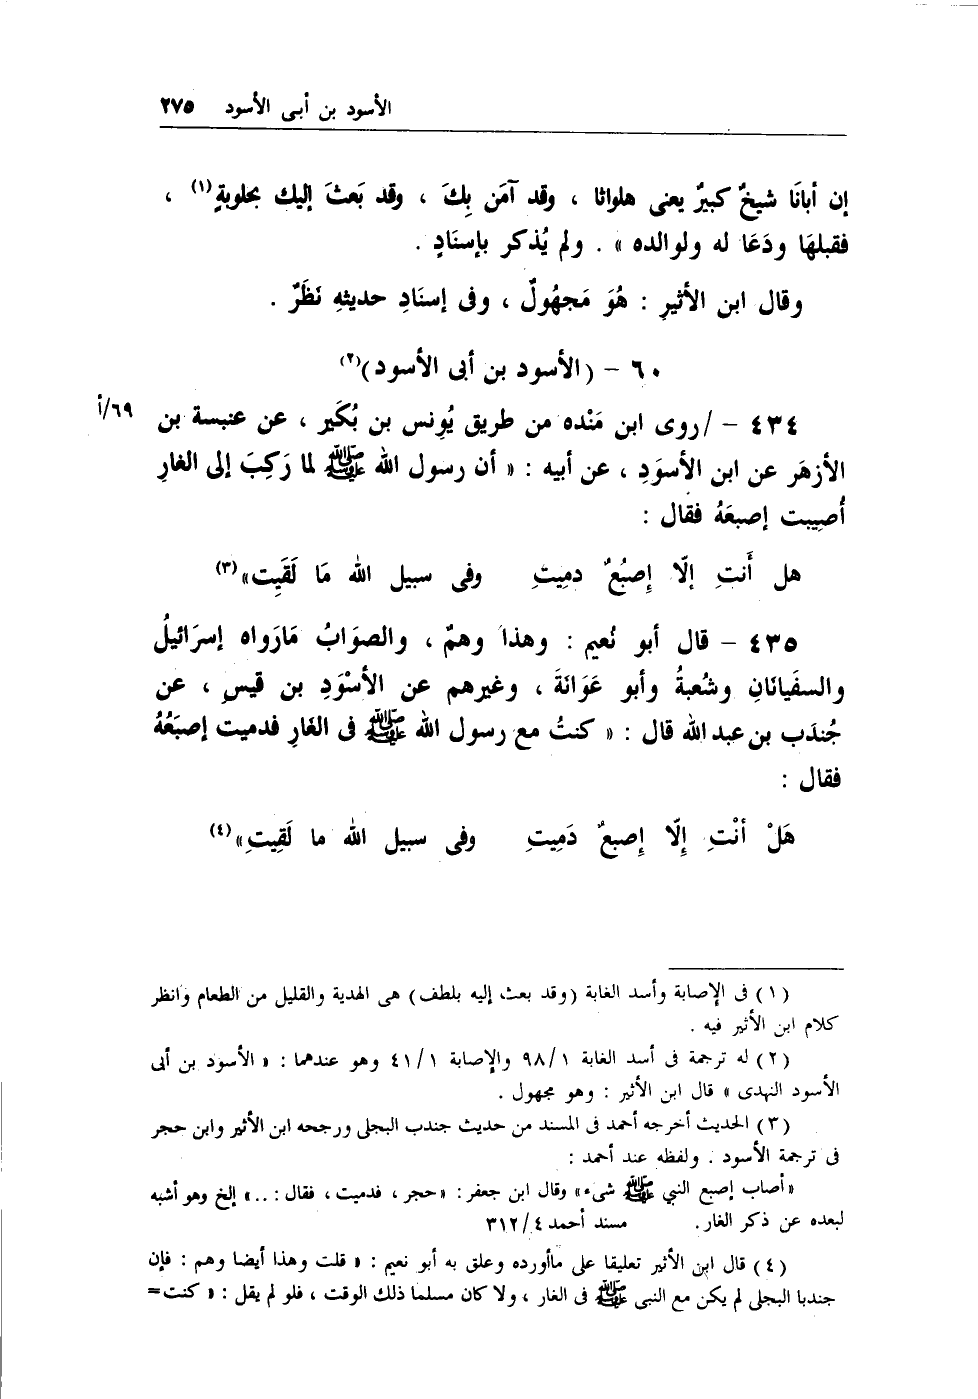 الأسود بن أبى الأسود ٢٧٥
إن أبانَا شيخٌ كبيرٌ يعنى هلواثا ، وقد آمَن بِكَ ، وقد بَعثَ إليك بحلوبةٍ(١) ،
فقبلهَا ودَعَا له ولوالده » . ولم يُذكر بإسنَادٍ .
وقال ابن الأثيرِ : هُوَ مَجهُولٌ ، وفى إسنَادِ حديثهِ نَظَرٌ .
٦٠ – (الأسود بن أبى الأسود)(٢)
٤٣٤ – /روى ابن مَنْده من طريق يُونس بن بُكَير ، عن عنبسة بن ٦٩/أ
الأزهَر عن ابن الأسوَدِ ، عن أبيه : « أن رسول الله ﷺ لما رَكِبَ إلى الغارِ
أُصيبت إصبعَهُ فقال :
هل أَنتِ إلّا إصبُعٌ دمِيتِ وفى سبيل الله مَا لَقَيِت»(٣)
٤٣٥ – قال أبو نُعيم : وهذا وهمٌ ، والصوَابُ مَارواه إسرَائيلُ
والسفَيانَانِ وشُعبةُ وأبو عَوَانةَ ، وغيرهم عن الأسْوَدِ بن قيسِ ، عن
جُندَب بن عبد الله قال : « كنتُ مع رسول الله ﷺ فى الغَارِ فدميت إصبَعُهُ
فقال :
هَلْ أنْتِ إلّا إصبعٌ دَمِيتِ وفى سبيل الله ما لَقِيتِ»(٤)
(١) فى الإصابة وأسد الغابة (وقد بعث إليه بلطف) هى الهدية والقليل من الطعام وانظر
كلام ابن الأثير فيه .
(٢) له ترجمة فى أسد الغابة ٩٨/١ والإصابة ٤١/١ وهو عندهما : « الأسود بن أبى
الأسود النهدى » قال ابن الأثير : وهو مجهول .
(٣) الحديث أخرجه أحمد فى المسند من حديث جندب البجلى ورجحه ابن الأثير وابن حجر
فى ترجمة الأسود . ولفظه عند أحمد :
«أصاب إصبع النبي ﷺ شىء» وقال ابن جعفر : «حجر ، فدميت ، فقال : ..» إلخ وهو أشبه
لبعده عن ذكر الغار. مسند أحمد ٣١٢/٤
(٤) قال ابن الأثير تعليقا على ماأورده وعلق به أبو نعيم : « قلت وهذا أيضا وهم : فإن
جندبا البجلى لم يكن مع النبى ﷺ فى الغار ، ولا كان مسلما ذلك الوقت ، فلو لم يقل : « كنت=